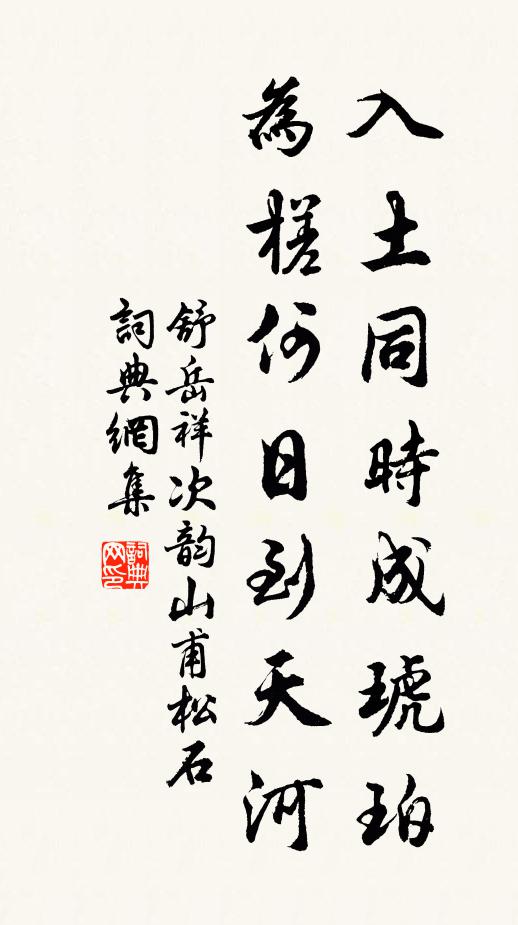 入土同時成琥珀
為槎何日到天河
舒岳祥次韵山甫松石
詞典網集
詞典网印